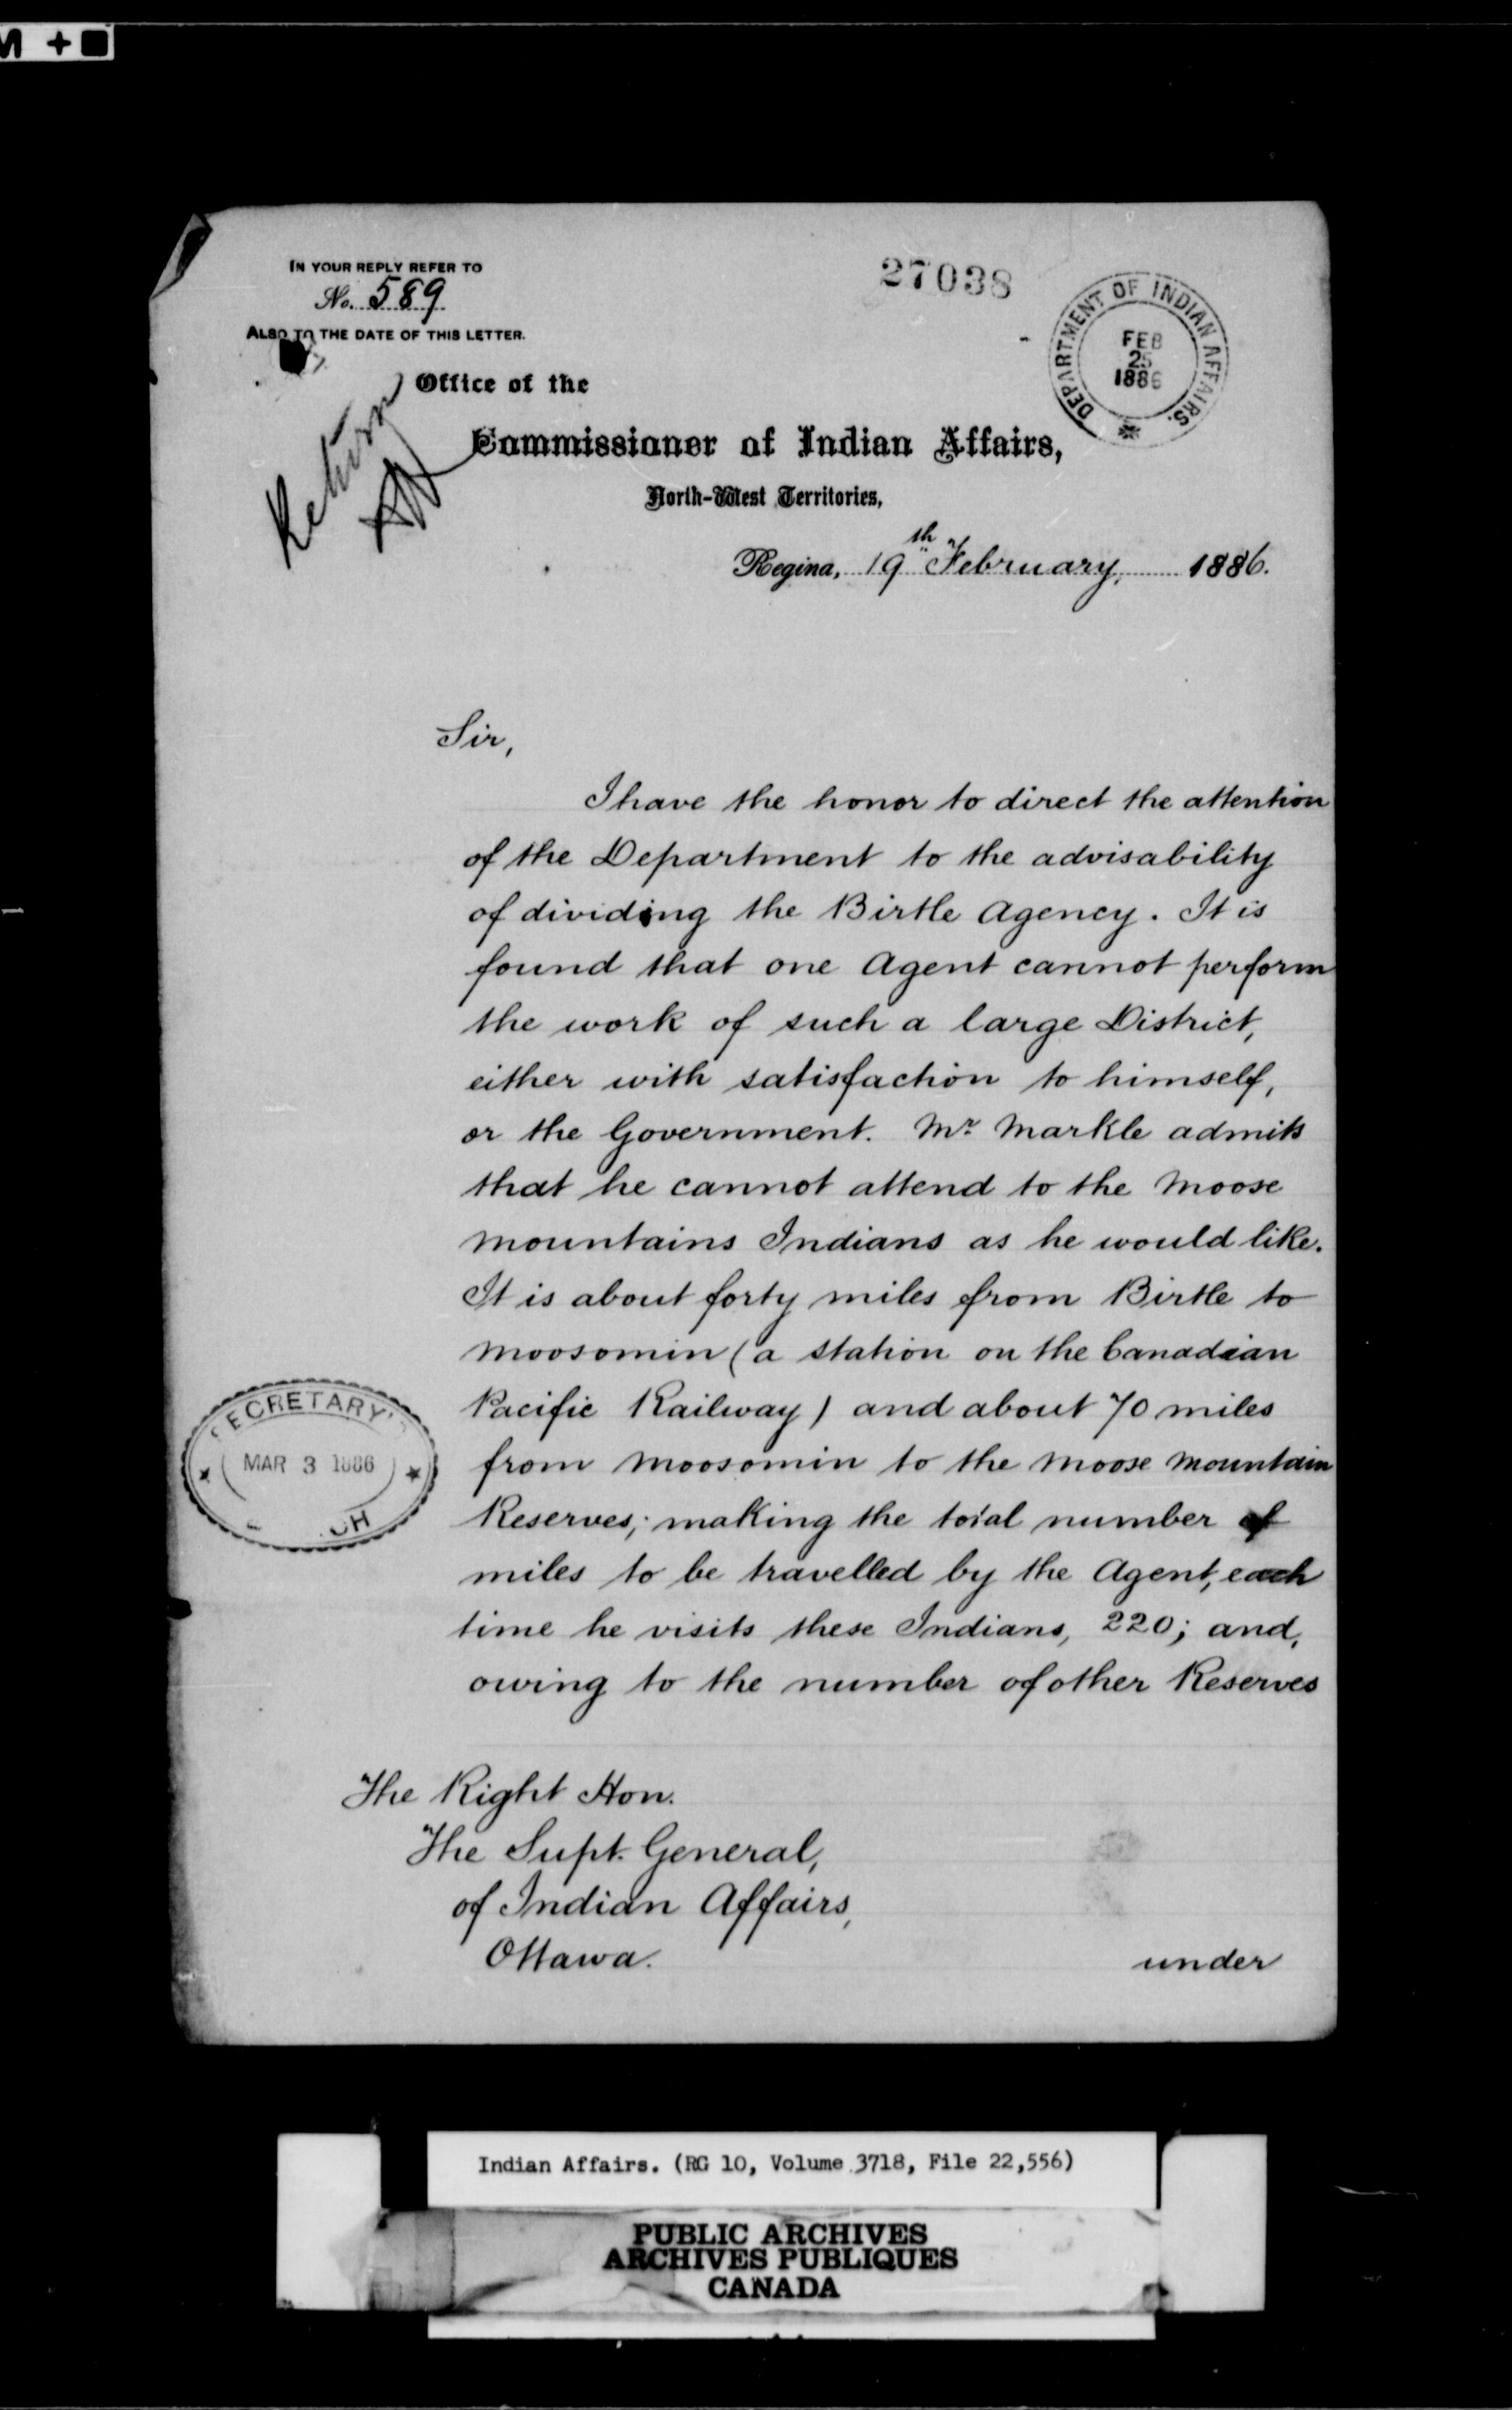 M +
IN YOUR REPLY REFER TO
No. 589
ALSO TO THE DATE OF THIS LETTER.
27038
DEPARTMENT OF INDIAN AFFAIRS.
FEB
25
1886
Return
Office of the
Commissioner of Indian Affairs,
North-West Territories,
Regina, 19th February, 1886.
Sir,
I have the honor to direct the attention
of the Department to the advisability
of dividing the Birtle Agency. It is
found that one Agent cannot perform
the work of such a large District,
either with satisfaction to himself,
or the Government. Mr. Markle admits
that he cannot attend to the Moose
Mountains Indians as he would like.
It is about forty miles from Birtle to
Moosomin (a station on the Canadian
Pacific Railway) and about 70 miles
from Moosomin to the Moose Mountain
Reserves; making the total number of
miles to be travelled by the Agent, each
time he visits these Indians, 220; and,
owing to the number of other Reserves
ECRETARY'
MAR 3 1886
CH
The Right Hon.
The Supt. General,
of Indian Affairs,
Ottawa.
under
Indian Affairs. (RG 10, Volume 3718, File 22,556)
PUBLIC ARCHIVES
ARCHIVES PUBLIQUES
CANADA